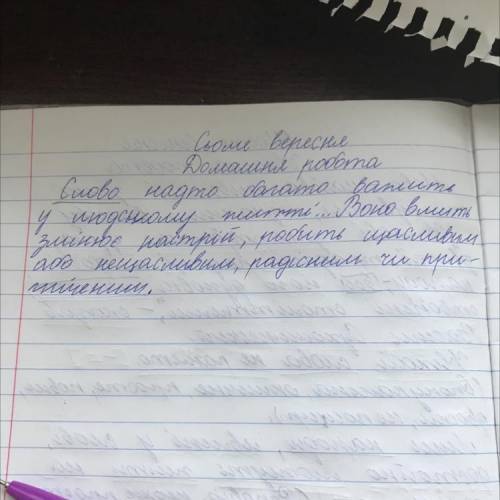 Сьоме вересня
Домашня робота
Слово надто багато важить
у людському житті... Воно вмить
змінює настрій, робить щасливим
або нещасливим, радісним чи при-
гніченим.